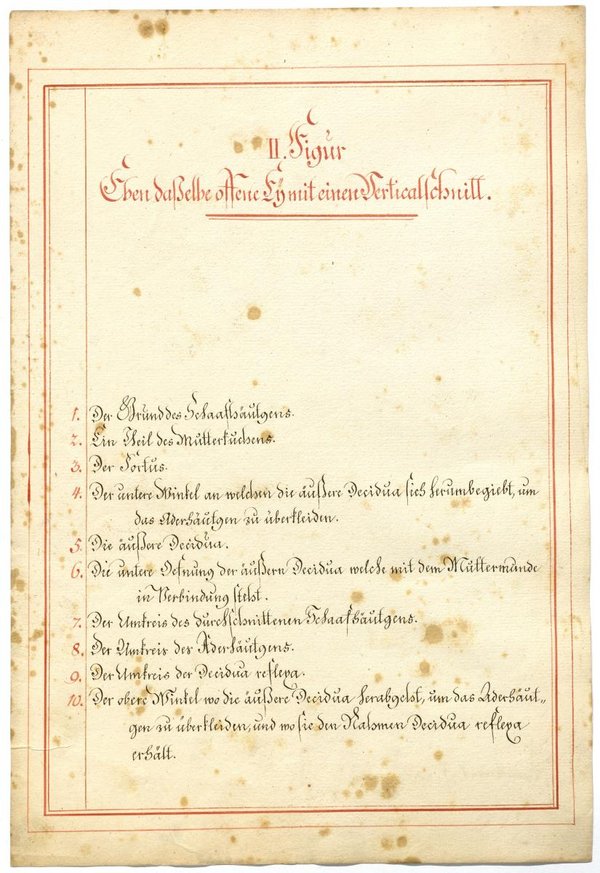 II. Figur
Eben daßelbe offene Ey mit einen Verticalschnitt.
1. Der Grund des Schaafhäutgens.
2. Ein Theil des Mutterkuchens.
3. Der Foetus.
4. Der untere Winkel an welchen die äußere Decidua sich herumbegiebt, um
das Aderhäutgen zu überkleiden.
5. Die äußere Decidua.
6. Die untere Oefnung der äußern Decidua welche mit dem Muttermunde
in Verbindung steht.
7. Der Umkreis des durchschnittenen Schaafhäutgens.
8. Der Umkreis der Aderhäutgens.
9. Der Umkreis der Decidua reflexa.
10. Der obere Winkel wo die äußere Decidua herabgeht, um das Aderhäut-
gen zu überkleiden, und wo sie den Nahmen Decidua reflexa
erhält.